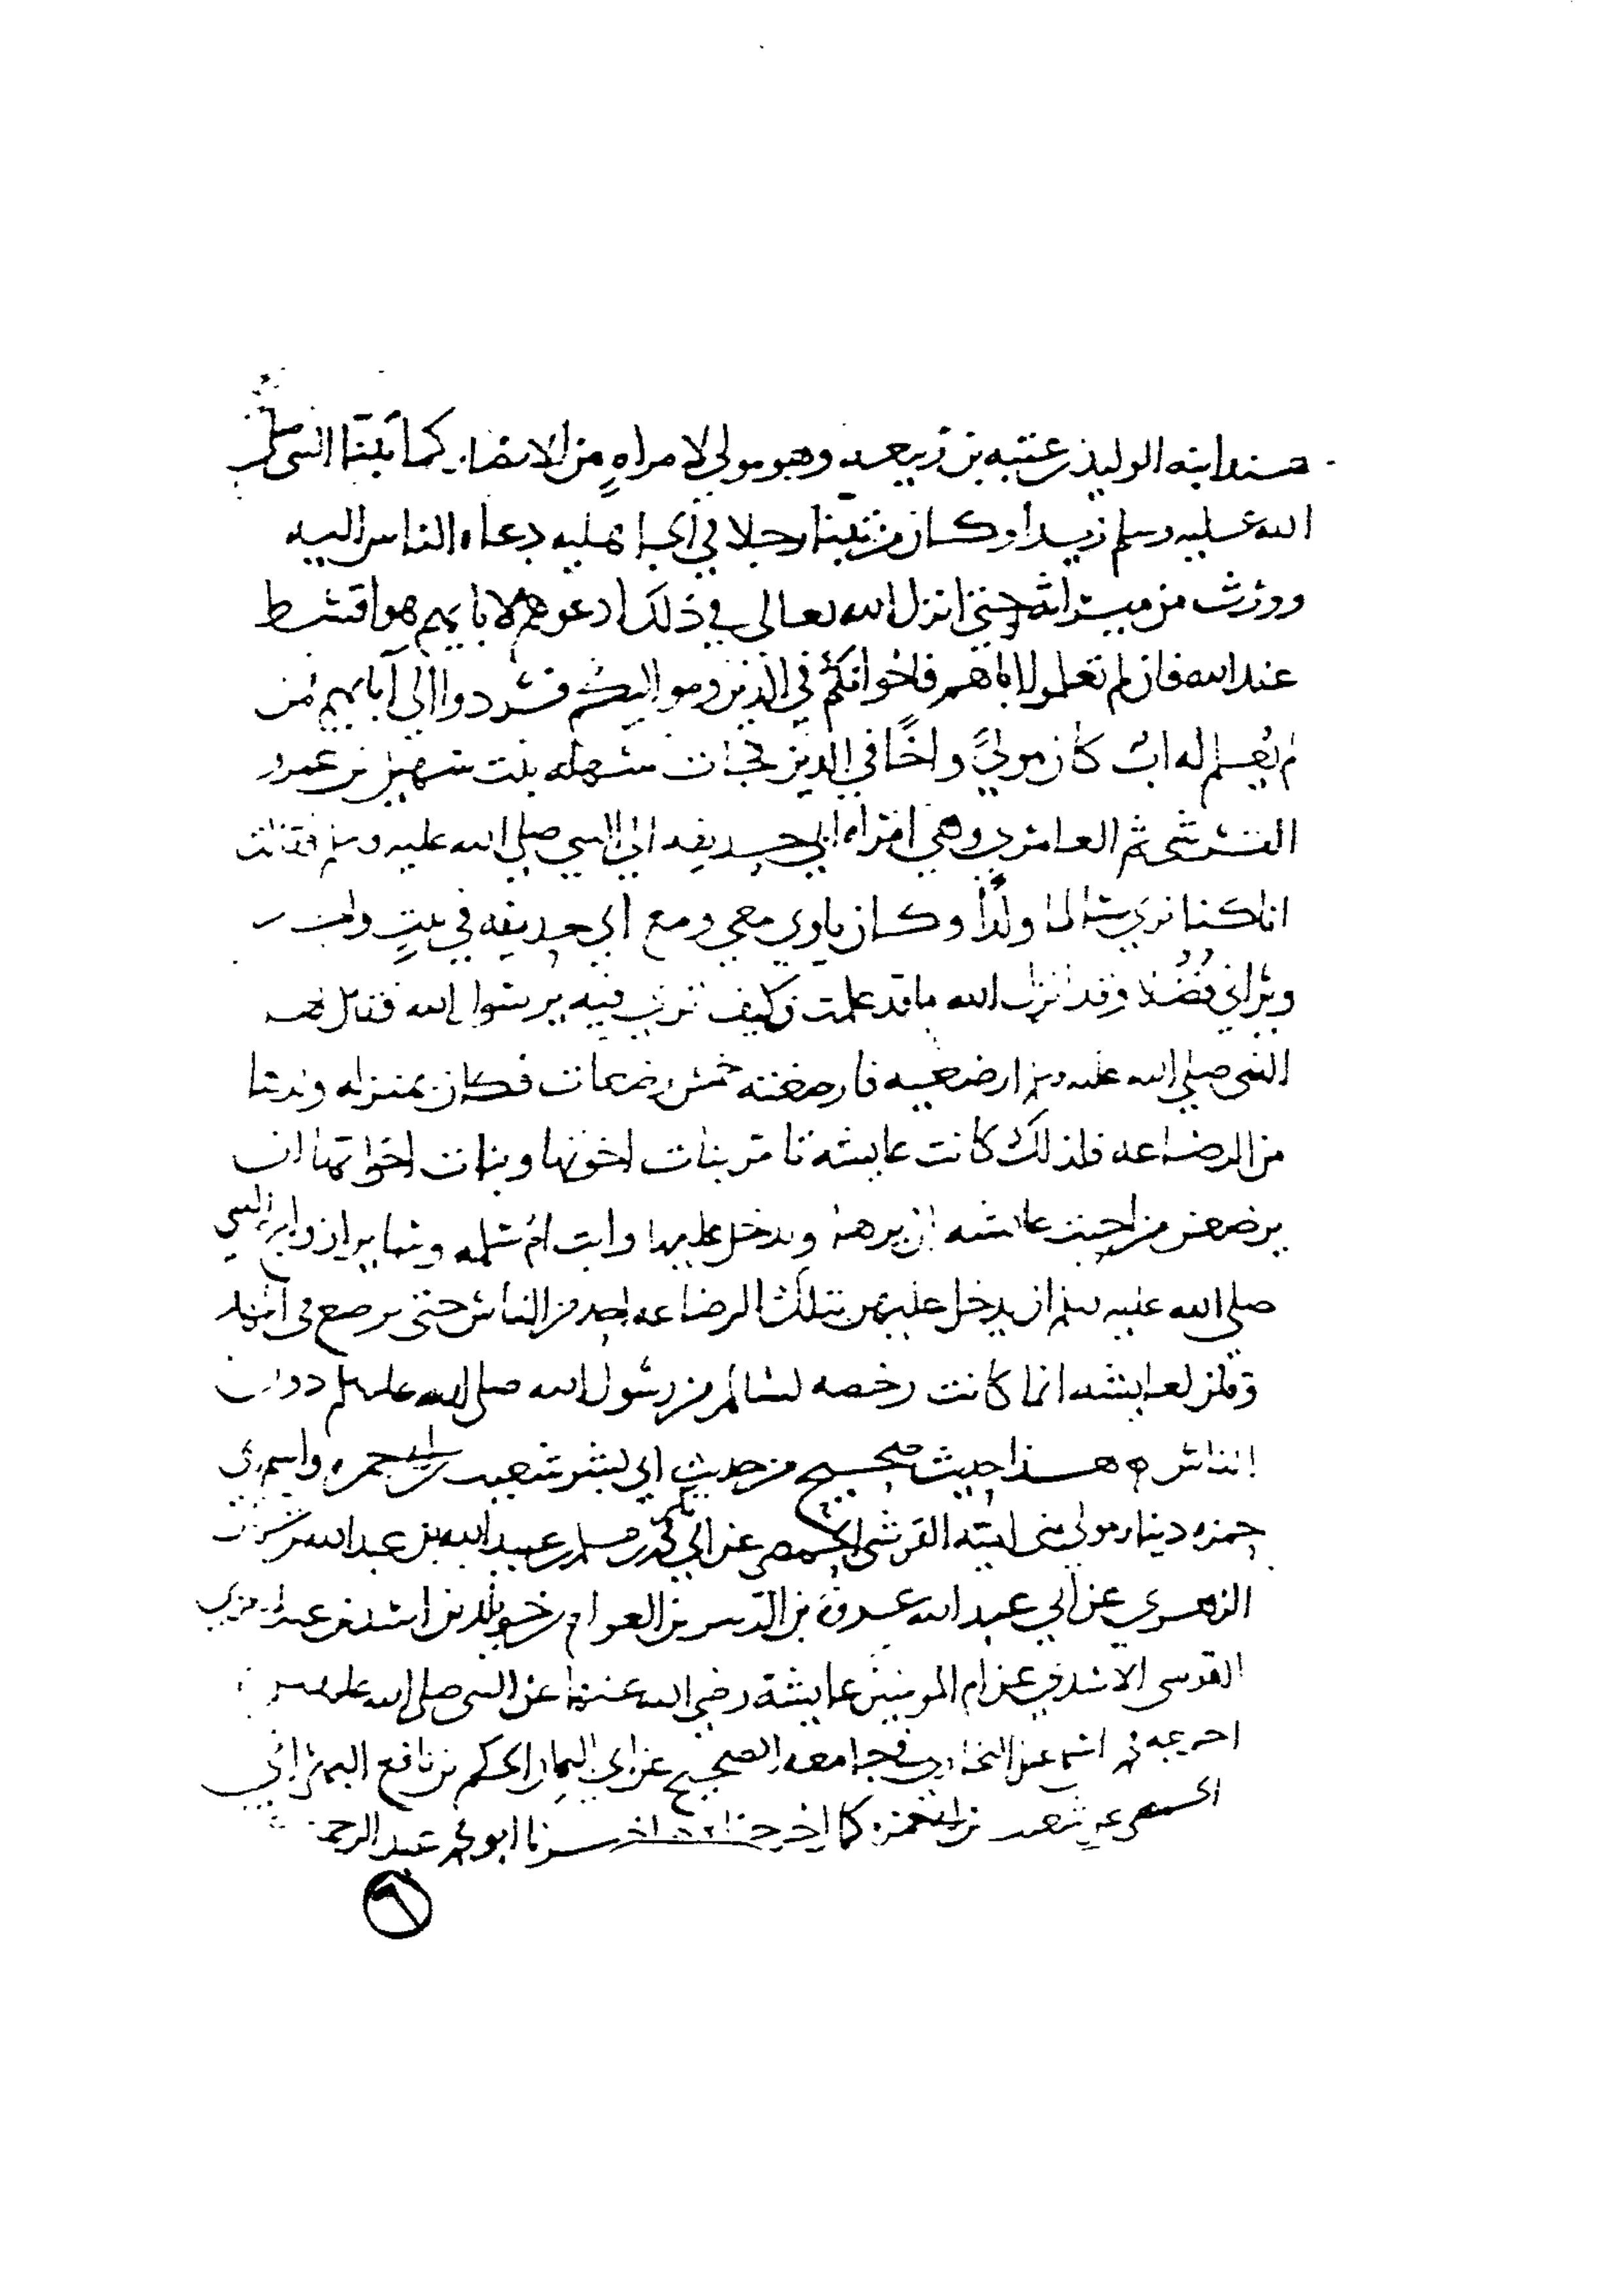 هند ابنه الوليد بن عتبه بن ربيعه وهو مولى لامراهٍ من الانصار كما تبنا النبي صلى
الله عليه وسلم زيدا وكان من تبنا رجلا في الجاهليه دعاه الناس اليه
وورث من ميراثه حتى انزل الله تعالى في ذلك ادعوهم لابايهم هو اقسط
عند الله فان لم تعلموا اباهم فاخوانكم في الدين ومواليكم فردوا الى آبايهم فمن
لم يُعلم له ابٌ كان مولىً واخًا في الدين فجات سهله بنت سهيل بن عمرو
القرشي ثم العامري وهي امراه ابي حذيفه الى النبي صلى الله عليه وسلم فقالت
انا كنا نرى سالما ولدًا وكان ياوي معي ومع ابي حذيفه في بيتٍ واحد
ويراني فُضُلا وقد انزل الله ما قد علمت فكيف ترى فيه يرسول الله فقال لها
النبي صلى الله عليه وسلم ارضعيه فارضعته خمس رضعات فكان بمنزله ولدها
من الرضاعه فلذلك كانت عايشه تامر بنات اخوتها وبنات اخواتها ان
يرضعن من احبت عايشه ان يرها ويدخل عليها وابت ام سلمه وساير ازواج النبي
صلى الله عليه وسلم ان يدخل عليهن بتلك الرضاعه احد من الناس حتى يرضع في المهد
وقلن لعايشه انما كانت رخصه لسالم من رسول الله صلى الله عليه وسلم دون
الناس هذا حديث صحيح من حديث ابي بشر شعيب بن ابي حمزه واسم ابي
حمزه دينار مولى بني اميه القرشي الحمصي عن ابي بكر محمد بن مسلم بن عبيد الله بن عبد الله بن شهاب
الزهري عن ابي عبد الله عروة بن الزبير بن العوام بن خويلد بن اسد بن عبد العزى
القرشي الاسدي عن ام المومنين عايشة رضي الله عنها عن النبي صلى الله عليه وسلم
اخرجه محمد بن اسمعيل البخاري في جامعه الصحيح عن ابي اليمان الحكم بن نافع البهراني
الحمصي عن شعيب بن ابي حمزه كما اخرجناه اخبرنا ابو محمد عبد الرحمن